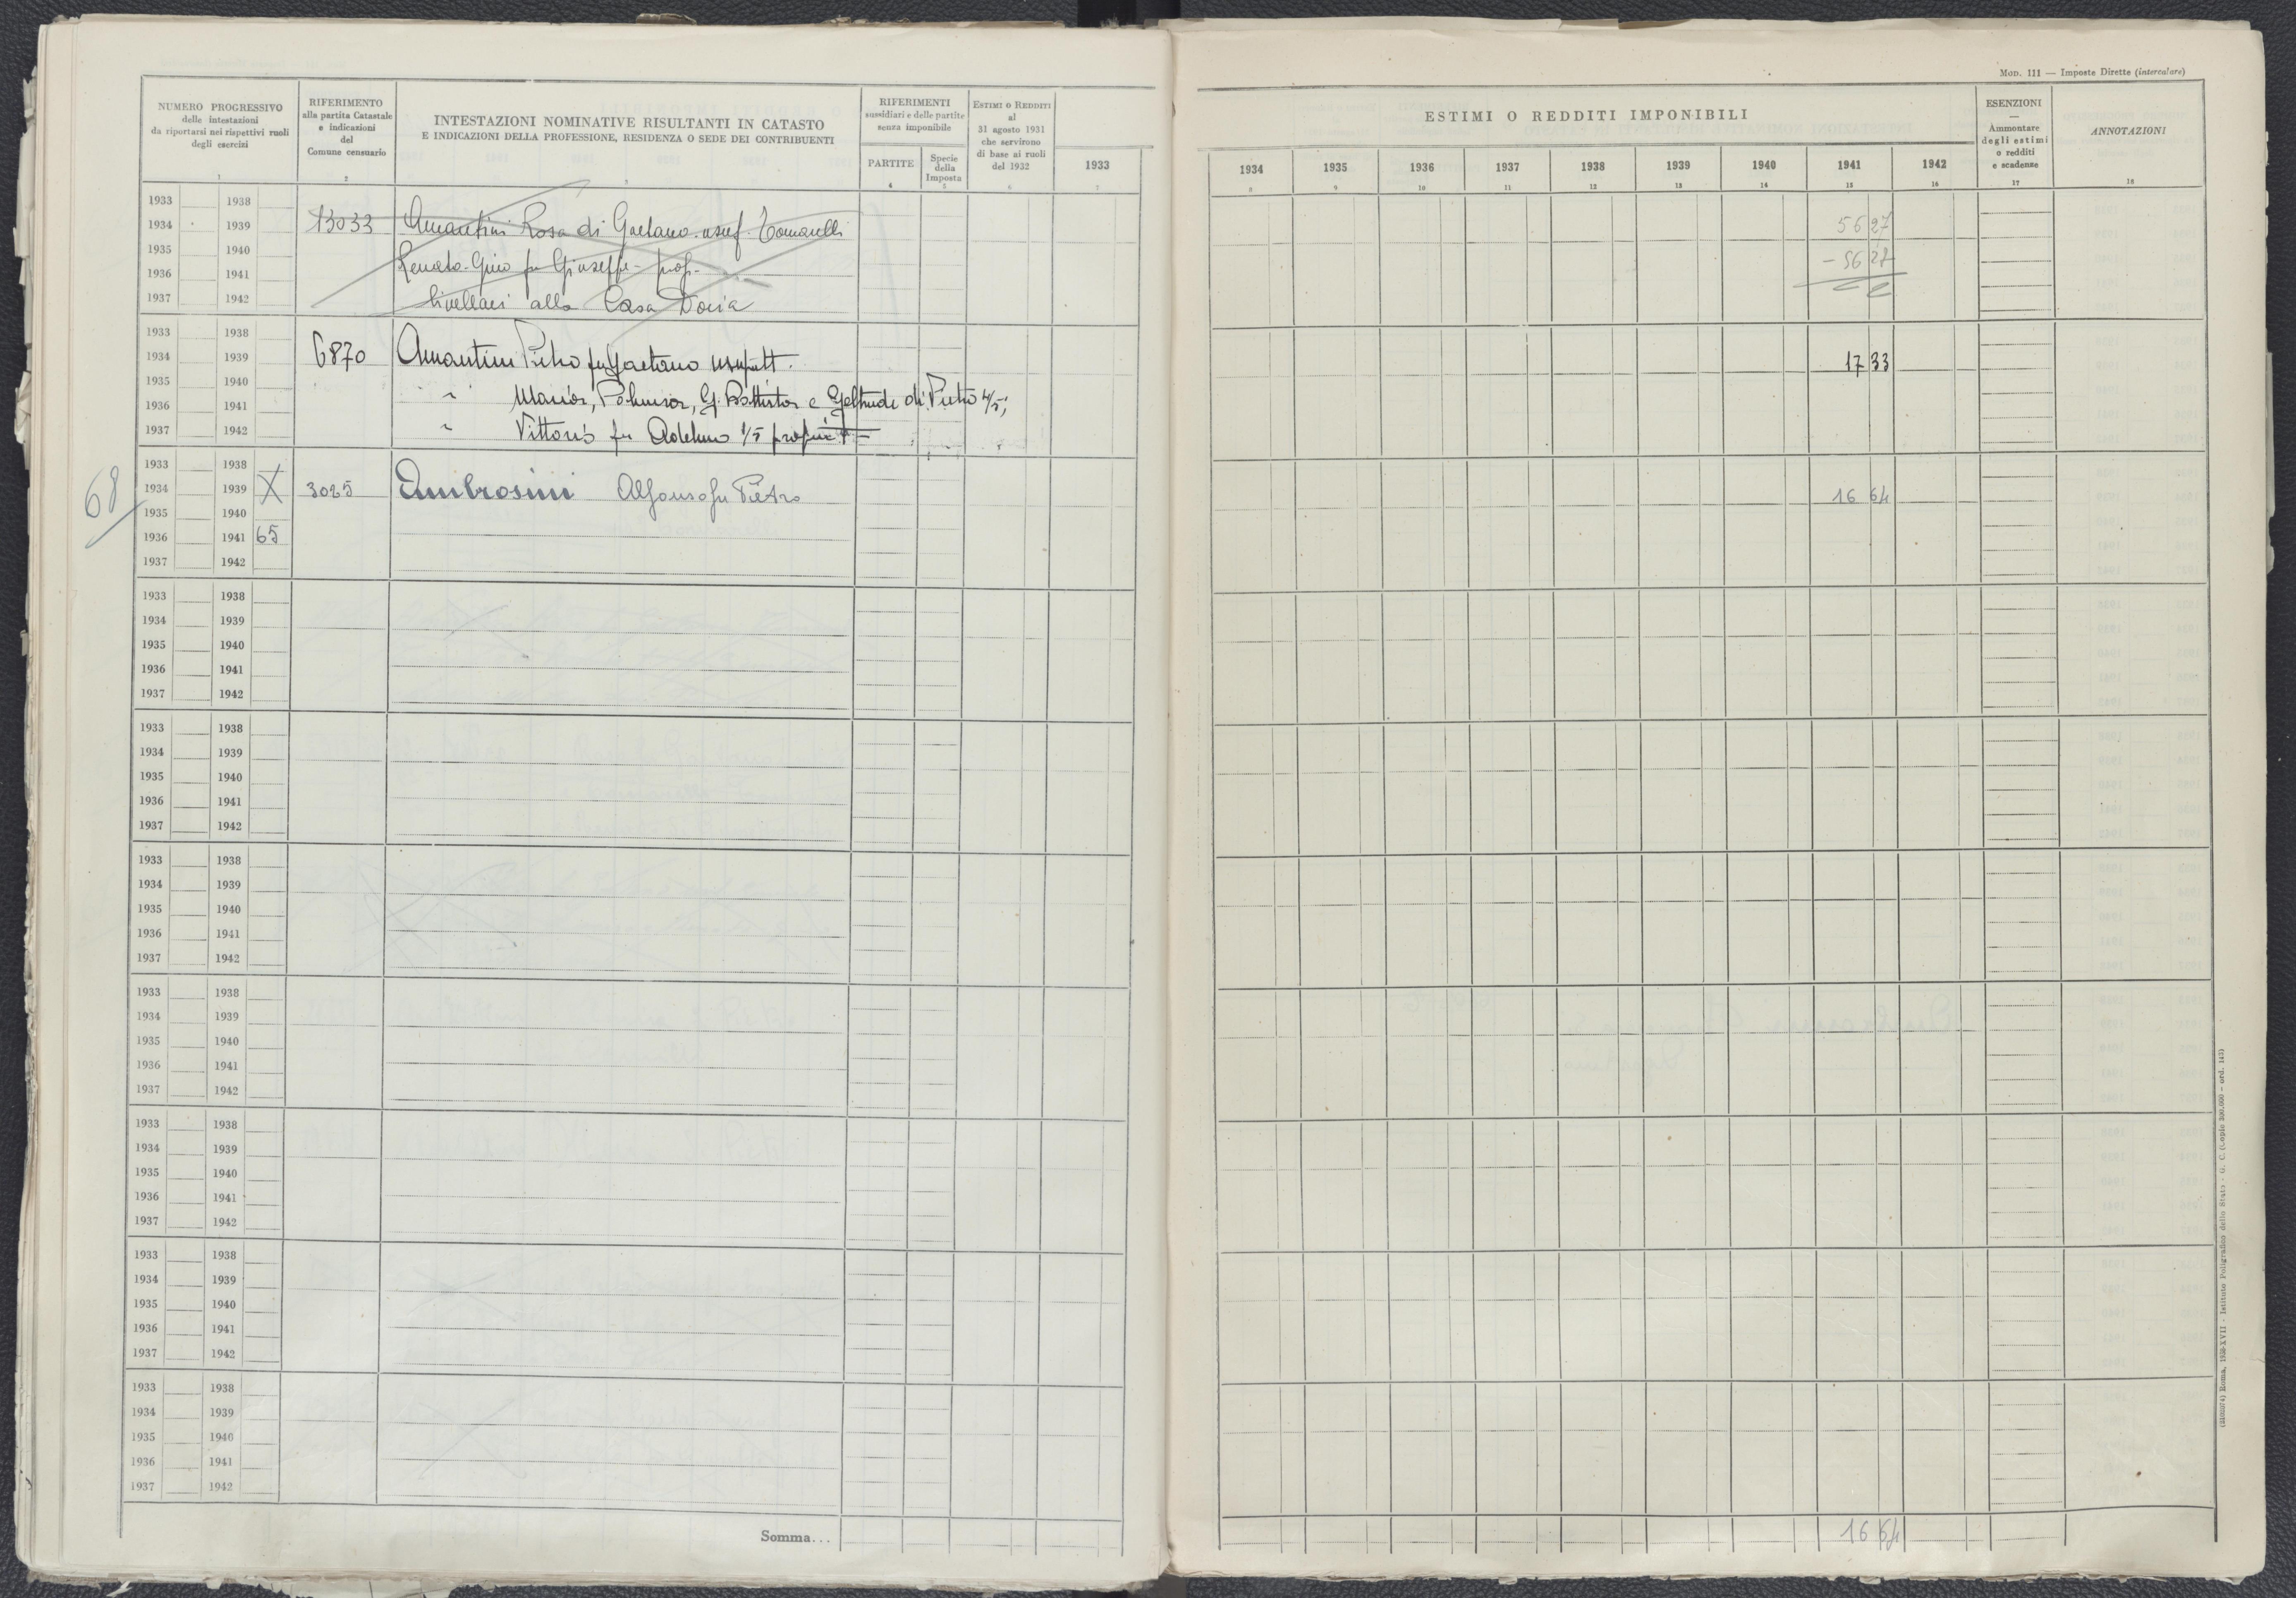 Mod. 111 — Imposte Dirette (intercalare)
NUMERO PROGRESSIVO
delle intestazioni
da riportarsi nei rispettivi ruoli
degli esercizi
1
RIFERIMENTO
alla partita Catastale
e indicazioni
del
Comune censuario
2
INTESTAZIONI NOMINATIVE RISULTANTI IN CATASTO
E INDICAZIONI DELLA PROFESSIONE, RESIDENZA O SEDE DEI CONTRIBUENTI
RIFERIMENTI
sussidiari e delle partite
senza imponibile
PARTITE
4
Specie
della
Imposta
5
Estimi o Redditi
al
31 agosto 1931
che servirono
di base ai ruoli
del 1932
6
1933
7
ESTIMI O REDDITI IMPONIBILI
1934 1935 1936 1937 1938 1939 1940 1941 1942
8 9 10 11 12 13 14 15 16
ESENZIONI
—
Ammontare
degli estimi
o redditi
e scadenze
17
ANNOTAZIONI
18
1933 1938
1934 1939 13033 Amantini Rosa di Gaetano usuf. Tomarelli 56 27
1935 1940 Renato Gino fu Giuseppe prop. - 56 27
1936 1941
1937 1942 livellari alla Casa Doria
1933 1938
1934 1939 6870 Amantini Pietro fu Gaetano usufrutt. 17 33
1935 1940
1936 1941 " Maria, G. Battista e Geltrude di Pietro 4/5;
1937 1942 " Vittorio fu Adelmo 1/5 propriet
1933 1938
68 1934 1939 X 3025 Ambrosini Alfonso fu Pietro 16 64
1935 1940
1936 1941 65
1937 1942
1933 1938
1934 1939
1935 1940
1936 1941
1937 1942
1933 1938
1934 1939
1935 1940
1936 1941
1937 1942
1933 1938
1934 1939
1935 1940
1936 1941
1937 1942
1933 1938
1934 1939
1935 1940
1936 1941
1937 1942
1933 1938
1934 1939
1935 1940
1936 1941
1937 1942
1933 1938
1934 1939
1935 1940
1936 1941
1937 1942
1933 1938
1934 1939
1935 1940
1936 1941
1937 1942
Somma... 16 64
Roma, 1939-XVII - Istituto Poligrafico dello Stato - G. C. (Copie 300.000 - ord. 143)